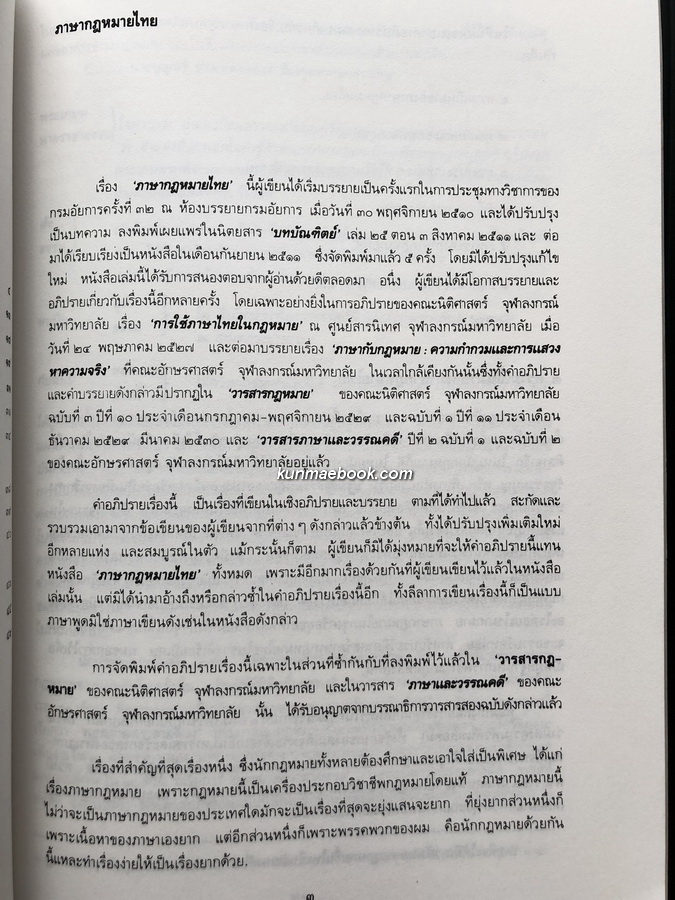 ภาษากฎหมายไทย
เรื่อง 'ภาษากฎหมายไทย' นี้ผู้เขียนได้เริ่มบรรยายเป็นครั้งแรกในการประชุมทางวิชาการของ
กรมอัยการครั้งที่ ๓๒ ณ ห้องบรรยายกรมอัยการ เมื่อวันที่ ๓๐ พฤศจิกายน ๒๕๑๐ และได้ปรับปรุง
เป็นบทความ ลงพิมพ์เผยแพร่ในนิตยสาร 'บทบัณฑิตย์' เล่ม ๒๕ ตอน ๓ สิงหาคม ๒๕๑๑ และ ต่อ
มาได้เรียบเรียงเป็นหนังสือในเดือนกันยายน ๒๕๑๑ ซึ่งจัดพิมพ์มาแล้ว ๕ ครั้ง โดยมิได้ปรับปรุงแก้ไข
ใหม่ หนังสือเล่มนี้ได้รับการสนองตอบจากผู้อ่านด้วยดีตลอดมา อนึ่ง ผู้เขียนได้มีโอกาสบรรยายและ
อภิปรายเกี่ยวกับเรื่องนี้อีกหลายครั้ง โดยเฉพาะอย่างยิ่งในการอภิปรายของคณะนิติศาสตร์ จุฬาลงกรณ์
มหาวิทยาลัย เรื่อง 'การใช้ภาษาไทยในกฎหมาย' ณ ศูนย์สารนิเทศ จุฬาลงกรณ์มหาวิทยาลัย เมื่อ
วันที่ ๒๔ พฤษภาคม ๒๕๒๗ และต่อมาบรรยายเรื่อง 'ภาษากับกฎหมาย : ความกำกวมและการแสวง
หาความจริง' ที่คณะอักษรศาสตร์ จุฬาลงกรณ์มหาวิทยาลัย ในเวลาใกล้เคียงกันนั้นซึ่งทั้งคำอภิปราย
และคำบรรยายดังกล่าวมีปรากฏใน 'วารสารกฎหมาย' ของคณะนิติศาสตร์ จุฬาลงกรณ์มหาวิทยาลัย
ฉบับที่ ๓ ปีที่ ๑๐ ประจำเดือนกรกฎาคม-พฤศจิกายน ๒๕๒๙ และฉบับที่ ๑ ปีที่ ๑๑ ประจำเดือน
ธันวาคม ๒๕๒๙ มีนาคม ๒๕๓๐ และ 'วารสารภาษาและวรรณคดี' ปีที่ ๒ ฉบับที่ ๑ และฉบับที่ ๒
ของคณะอักษรศาสตร์ จุฬาลงกรณ์มหาวิทยาลัยอยู่แล้ว
kunmaebook.com
คำอภิปรายเรื่องนี้ เป็นเรื่องที่เขียนในเชิงอภิปรายและบรรยาย ตามที่ได้ทำไปแล้ว สะกัดและ
รวบรวมเอามาจากข้อเขียนของผู้เขียนจากที่ต่าง ๆ ดังกล่าวแล้วข้างต้น ทั้งได้ปรับปรุงเพิ่มเติมใหม่
อีกหลายแห่ง และสมบูรณ์ในตัว แม้กระนั้นก็ตาม ผู้เขียนก็มิได้มุ่งหมายที่จะให้คำอภิปรายนี้แทน
หนังสือ 'ภาษากฎหมายไทย' ทั้งหมด เพราะมีอีกมากเรื่องด้วยกันที่ผู้เขียนเขียนไว้แล้วในหนังสือ
เล่มนั้น แต่มิได้นำมาอ้างถึงหรือกล่าวซ้ำในคำอภิปรายเรื่องนี้อีก ทั้งลีลาการเขียนเรื่องนี้ก็เป็นแบบ
ภาษาพูดมิใช่ภาษาเขียนดังเช่นในหนังสือดังกล่าว
การจัดพิมพ์คำอภิปรายเรื่องนี้เฉพาะในส่วนที่ซ้ำกันกับที่ลงพิมพ์ไว้แล้วใน 'วารสารกฎ-
หมาย' ของคณะนิติศาสตร์ จุฬาลงกรณ์มหาวิทยาลัย และในวารสาร 'ภาษาและวรรณคดี' ของคณะ
อักษรศาสตร์ จุฬาลงกรณ์มหาวิทยาลัย นั้น ได้รับอนุญาตจากบรรณาธิการวารสารสองฉบับดังกล่าวแล้ว
เรื่องที่สำคัญที่สุดเรื่องหนึ่ง ซึ่งนักกฎหมายทั้งหลายต้องศึกษาและเอาใจใส่เป็นพิเศษ ได้แก่
เรื่องภาษากฎหมาย เพราะกฎหมายนี้เป็นเครื่องประกอบวิชาชีพกฎหมายโดยแท้ ภาษากฎหมายนี้
ไม่ว่าจะเป็นภาษากฎหมายของประเทศใดมักจะเป็นเรื่องที่สุดจะยุ่งแสนจะยาก ที่ยุ่งยากส่วนหนึ่งก็
เพราะเนื้อหาของภาษาเองยาก แต่อีกส่วนหนึ่งก็เพราะพรรคพวกของผม คือนักกฎหมายด้วยกัน
นี้แหละทำเรื่องง่ายให้เป็นเรื่องยากด้วย.
๓